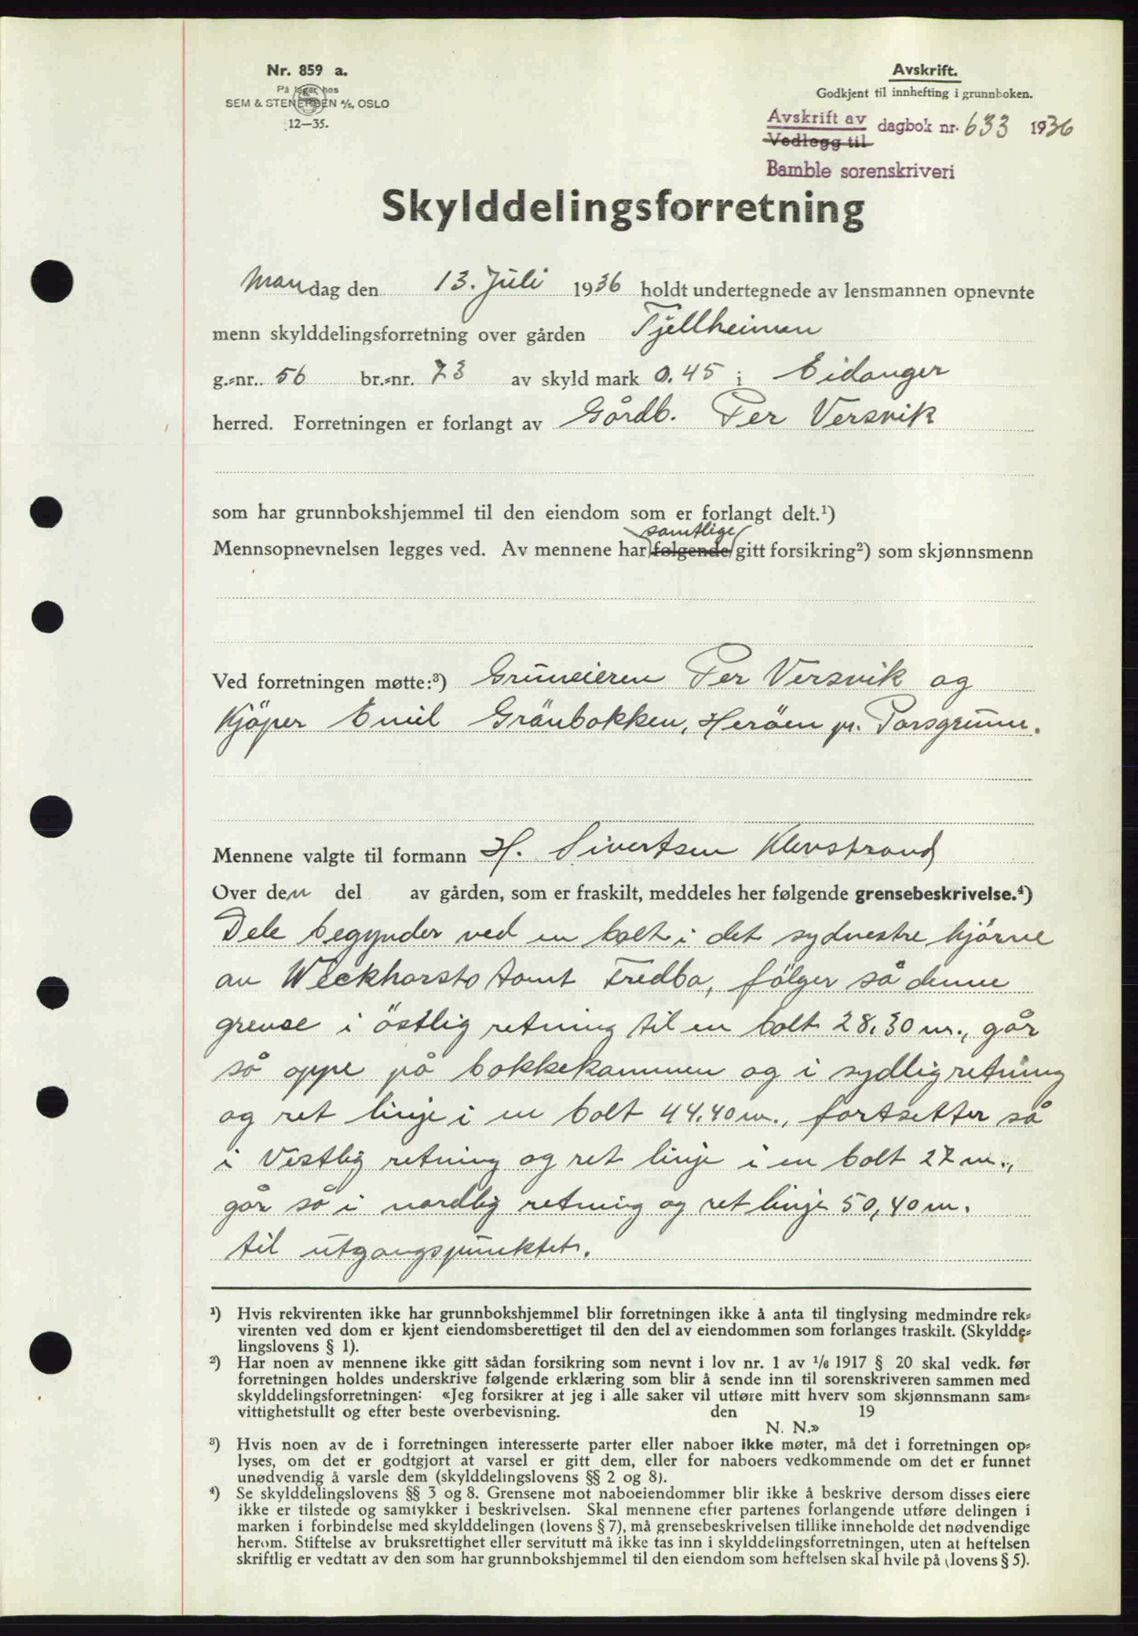 Nr. 859 a.
På lager hos
SEM & STENERSEN A/S, OSLO
12—35.
Avskrift.
Godkjent til innhefting i grunnboken.
Avskrift av dagbok nr. 633 1936
Vedlegg til
Bamble sorenskriveri
Skylddelingsforretning
Mandag den 13. Juli 1936 holdt undertegnede av lensmannen opnevnte
menn skylddelingsforretning over gården Fjellheimen
g.-nr. 56 br.-nr. 73 av skyld mark 0.45 i Eidanger
herred. Forretningen er forlangt av Gårdb. Per Versvik
som har grunnbokshjemmel til den eiendom som er forlangt delt.¹)
samtlige
Mennsopnevnelsen legges ved. Av mennene har følgende gitt forsikring²) som skjønnsmenn
Ved forretningen møtte:³) Gruneieren Per Versvik og
Kjöper Emil Grönbakken, Heröen pr. Porsgrunn.
Mennene valgte til formann H. Sivertsen Klevstrand
Over den del av gården, som er fraskilt, meddeles her følgende grensebeskrivelse.⁴)
Dele begynder ved en bolt i det sydvestre hjörne
av Weckhorsts tomt Fredbo, fölger så denne
grense i östlig retning til en bolt 28.30 m., går
så oppe på bakkekammen og i sydlig retning
og ret linje i en bolt 44.40 m., fortsetter så
i Vestlig retning og ret linje i en bolt 27 m.,
går så i nordlig retning og ret linje 50,40 m.
til utgangspunktet.
¹) Hvis rekvirenten ikke har grunnbokshjemmel blir forretningen ikke å anta til tinglysing medmindre rek-
virenten ved dom er kjent eiendomsberettiget til den del av eiendommen som forlanges fraskilt. (Skyldde-
lingslovens § 1).
²) Har noen av mennene ikke gitt sådan forsikring som nevnt i lov nr. 1 av ¹/₆ 1917 § 20 skal vedk. før
forretningen holdes underskrive følgende erklæring som blir å sende inn til sorenskriveren sammen med
skylddelingsforretningen: «Jeg forsikrer at jeg i alle saker vil utføre mitt hverv som skjønnsmann sam-
vittighetsfullt og efter beste overbevisning. den 19
N. N.»
³) Hvis noen av de i forretningen interesserte parter eller naboer ikke møter, må det i forretningen op-
lyses, om det er godtgjort at varsel er gitt dem, eller for naboers vedkommende om det er funnet
unødvendig å varsle dem (skylddelingslovens §§ 2 og 8).
⁴) Se skylddelingslovens §§ 3 og 8. Grensene mot naboeiendommer blir ikke å beskrive dersom disses eiere
ikke er tilstede og samtykker i beskrivelsen. Skal mennene efter partenes forlangende utføre delingen i
marken i forbindelse med skylddelingen (lovens § 7), må grensebeskrivelsen tillike inneholde det nødvendige
herom. Stiftelse av bruksrettighet eller servitutt må ikke tas inn i skylddelingsforretningen, uten at heftelsen
skriftlig er vedtatt av den som har grunnbokshjemmel til den eiendom som heftelsen skal hvile på (lovens § 5).